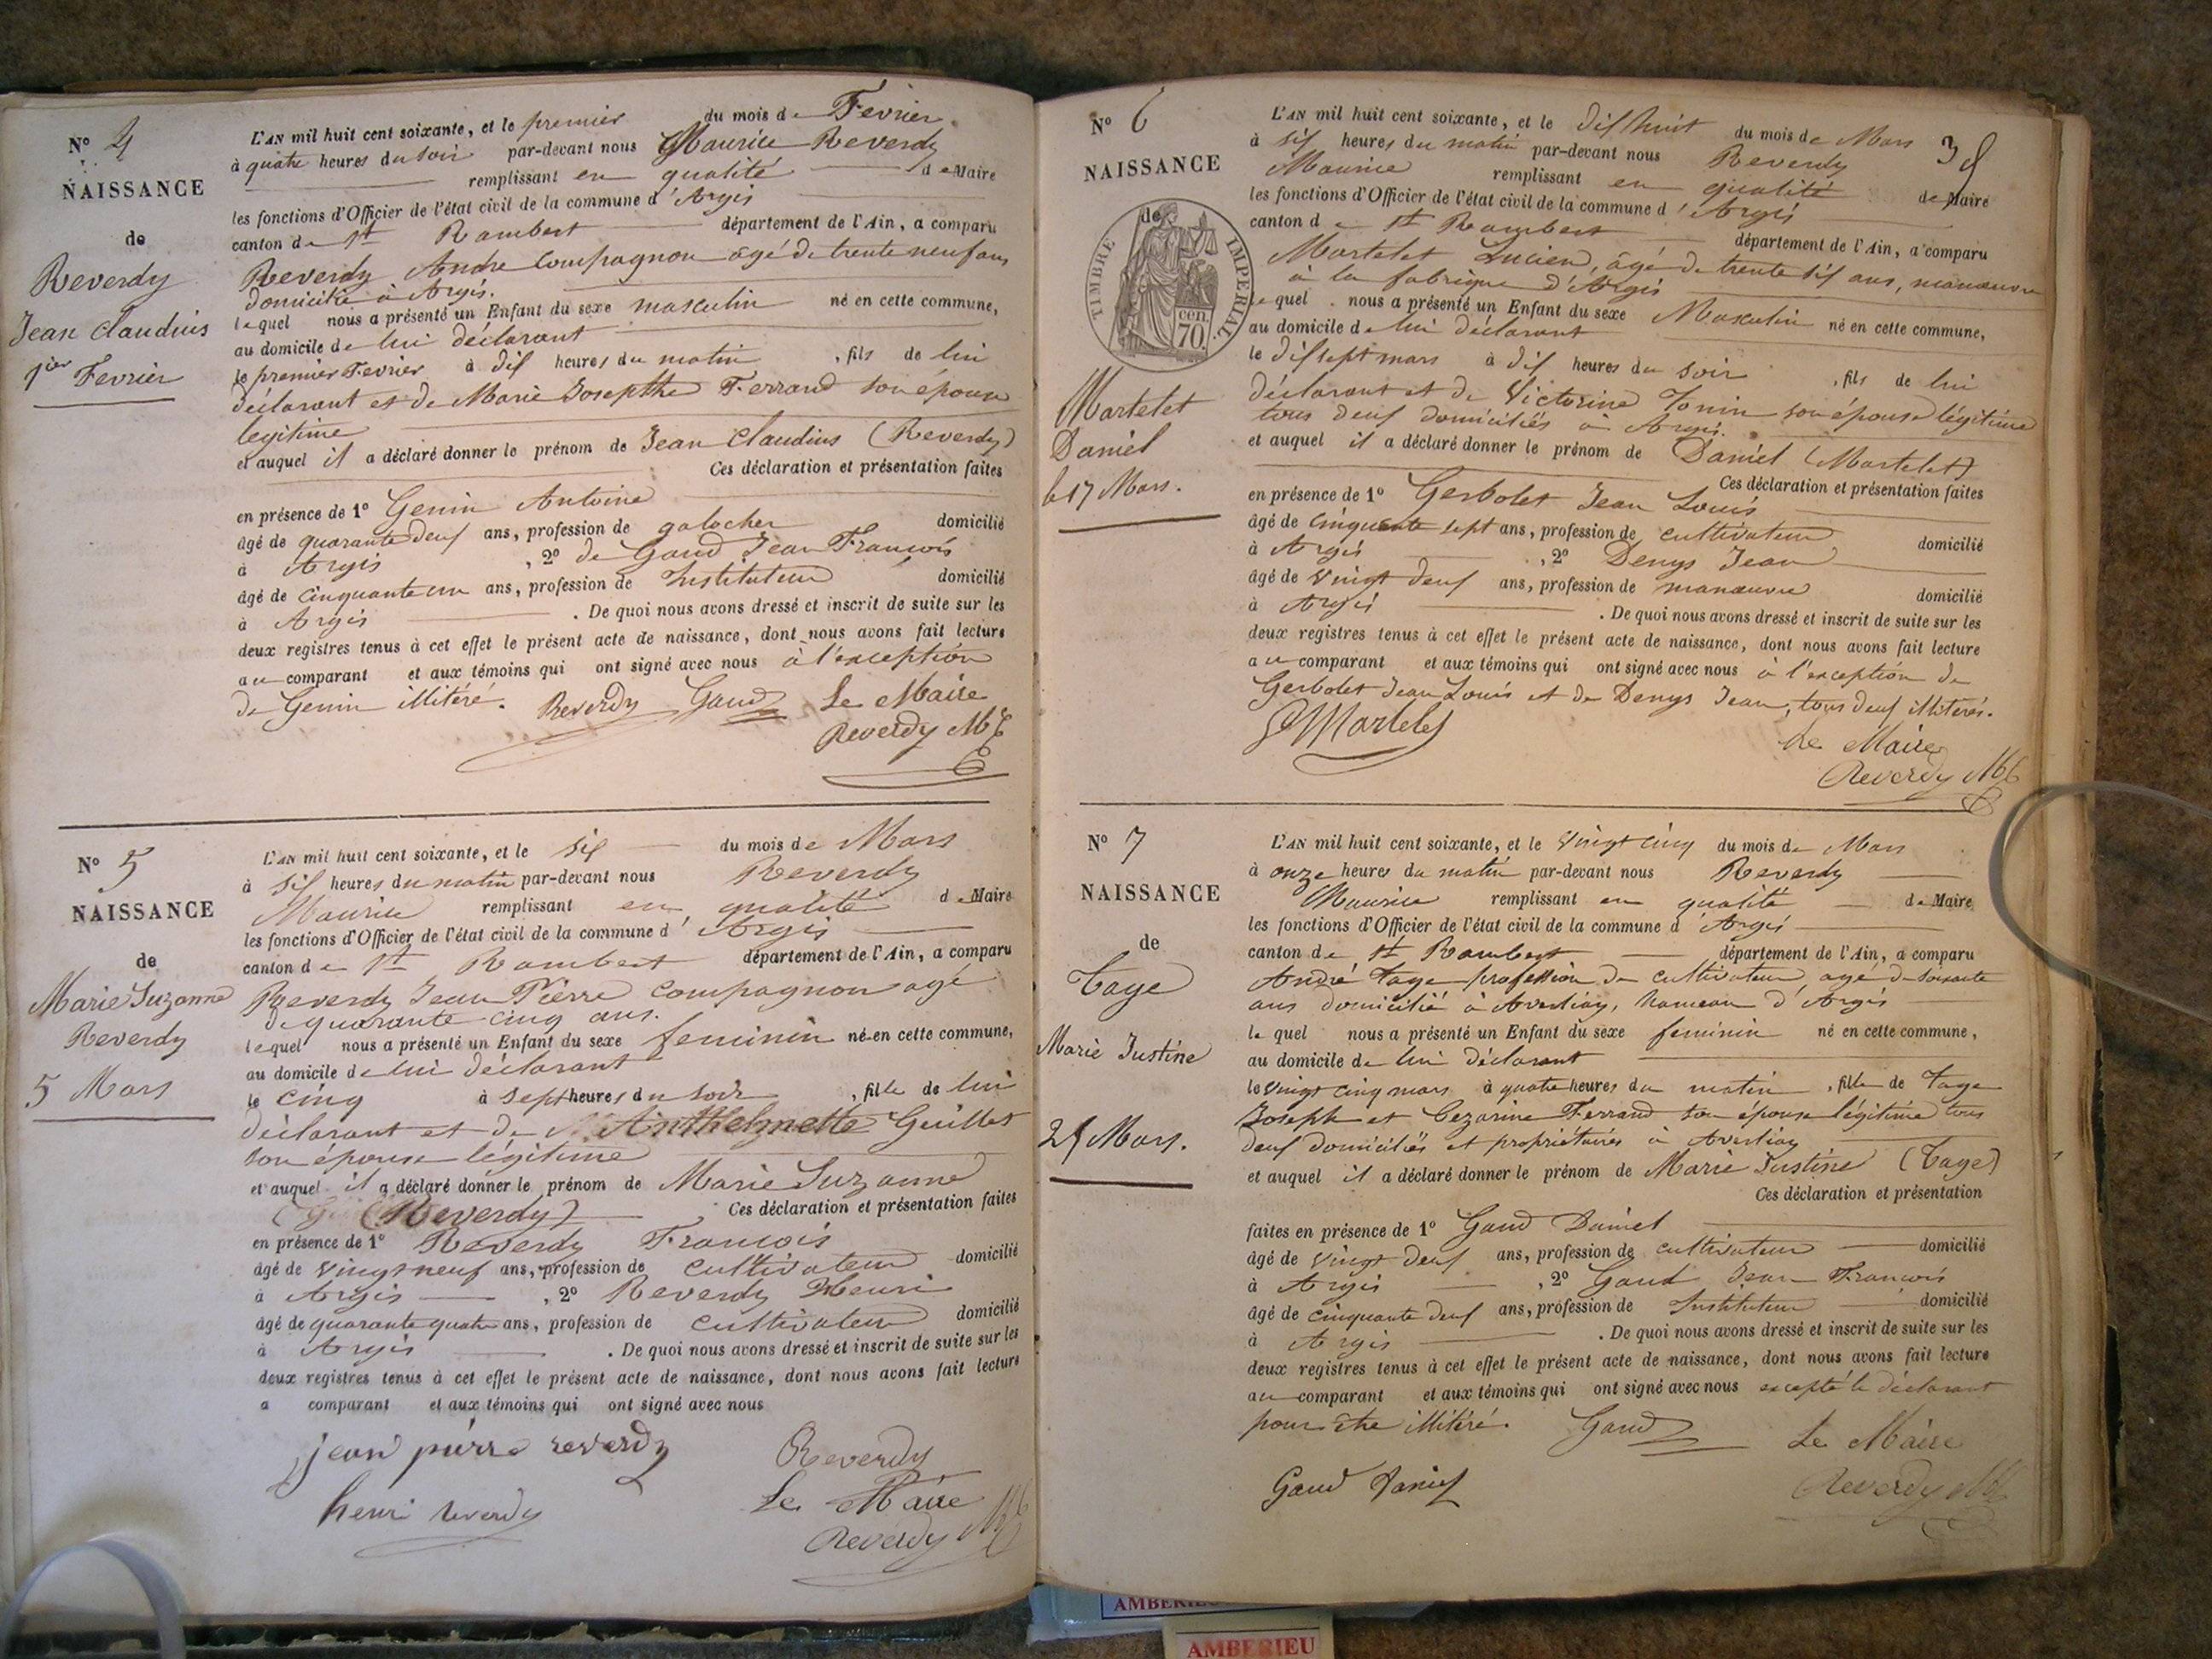 N° 4
NAISSANCE
de
Reverdy
Jean Claudius
1ier Fevrier
L'AN mil huit cent soixante, et le premier du mois de Fevrier.
à quatre heures du soir par-devant nous Maurice Reverdy
remplissant en qualité de Maire
les fonctions d'Officier de l'état civil de la commune d'Argis
canton de St Rambert département de l'Ain, a comparu
Reverdy Andre Compagnon âgé de trente neuf ans
domicilié à Argis.
lequel nous a présenté un Enfant du sexe masculin né en cette commune,
au domicile de lui déclarant
le premier Fevrier à dix heures du matin, fils de lui
déclarant et de Marie Josepthe Ferrand son épouse
legitime
et auquel il a déclaré donner le prénom de Jean Claudius (Reverdy)
Ces déclaration et présentation faites
en présence de 1° Genin Antoine
âgé de quarante deux ans, profession de galocher domicilié
à Argis, 2° de Gaud Jean François
âgé de cinquante un ans, profession de Instituteur domicilié
à Argis. De quoi nous avons dressé et inscrit de suite sur les
deux registres tenus à cet effet le présent acte de naissance, dont nous avons fait lecture
au comparant et aux témoins qui ont signé avec nous à l'exception
de Genin illitéré. Reverdy Gaud Le Maire
Reverdy
N° 5
NAISSANCE
de
Marie Suzanne
Reverdy
5 Mars
L'AN mil huit cent soixante, et le six du mois de Mars
à six heures du matin par-devant nous Reverdy
Maurice remplissant en qualité de Maire
les fonctions d'Officier de l'état civil de la commune d'Argis
canton de St Rambert département de l'Ain, a comparu
Reverdy Jean Pierre Compagnon agé
de quarante cinq ans.
lequel nous a présenté un Enfant du sexe feminin né en cette commune,
au domicile de lui déclarant
le cinq à sept heures du soir, fille de lui
déclarant et de Anthelmette Guillet
son épouse légitime
et auquel il a déclaré donner le prénom de Marie Suzanne
(Reverdy) Ces déclaration et présentation faites
en présence de 1° Reverdy François
âgé de vingt neuf ans, profession de cultivateur domicilié
à Argis, 2° Reverdy Henri
âgé de quarante quatre ans, profession de cultivateur domicilié
à Argis. De quoi nous avons dressé et inscrit de suite sur les
deux registres tenus à cet effet le présent acte de naissance, dont nous avons fait lecture
a comparant et aux témoins qui ont signé avec nous
jean pierre reverdy Reverdy
henri reverdy Le Maire
Reverdy
N° 6
NAISSANCE
de
TIMBRE IMPERIAL.
cen.
70.
Martelet
Daniel
le 17 Mars.
L'AN mil huit cent soixante, et le dix huit du mois de Mars
à six heures du matin par-devant nous Reverdy
Maurice remplissant en qualité de Maire
les fonctions d'Officier de l'état civil de la commune d'Argis
canton de St Rambert département de l'Ain, a comparu
Martelet Lucien, âgé de trente six ans, manœuvre
à la fabrique d'Argis
lequel nous a présenté un Enfant du sexe Masculin né en cette commune,
au domicile de lui déclarant
le dix sept mars à dix heures du soir, fils de lui
déclarant et de Victorine Tonin son épouse légitime
tous deux domiciliés à Argis.
et auquel il a déclaré donner le prénom de Daniel (Martelet)
Ces déclaration et présentation faites
en présence de 1° Gerbolet Jean Louis
âgé de cinquante sept ans, profession de cultivateur domicilié
à Argis, 2° Denys Jean
âgé de vingt deux ans, profession de manœuvre domicilié
à Argis. De quoi nous avons dressé et inscrit de suite sur les
deux registres tenus à cet effet le présent acte de naissance, dont nous avons fait lecture
au comparant et aux témoins qui ont signé avec nous à l'exception de
Gerbolet Jean Louis et de Denys Jean, tous deux illitérés.
Martelet
Le Maire
Reverdy
N° 7
NAISSANCE
de
Tage
Marie Justine
25 Mars.
L'AN mil huit cent soixante, et le vingt cinq du mois de Mars
à onze heures du matin par-devant nous Reverdy
Maurice remplissant en qualité de Maire
les fonctions d'Officier de l'état civil de la commune d'Argis
canton de St Rambert département de l'Ain, a comparu
André Tage profession de cultivateur agé de soixante
ans domicilié à Averliaz, hameau d'Argis
lequel nous a présenté un Enfant du sexe feminin né en cette commune,
au domicile de lui déclarant
le vingt cinq mars à quatre heures du matin, fille de Tage
Joseph et Cezarine Ferrand son épouse légitime tous
deux domiciliés et propriétaires à Averliaz
et auquel il a déclaré donner le prénom de Marie Justine (Tage)
Ces déclaration et présentation
faites en présence de 1° Gaud Daniel
âgé de vingt deux ans, profession de cultivateur domicilié
à Argis, 2° Gaud Jean François
âgé de cinquante deux ans, profession de Instituteur domicilié
à Argis. De quoi nous avons dressé et inscrit de suite sur les
deux registres tenus à cet effet le présent acte de naissance, dont nous avons fait lecture
au comparant et aux témoins qui ont signé avec nous excepté le déclarant
pour être illitéré. Gaud Le Maire
Gaud Daniel Reverdy
AMBERIEU